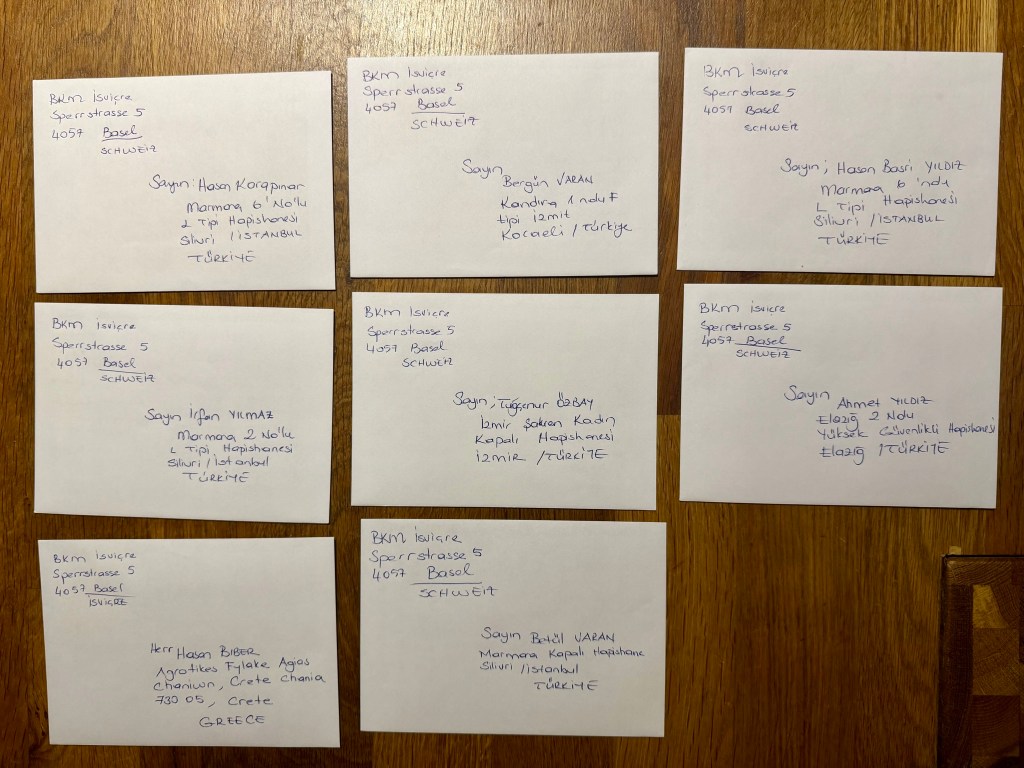 BKM İsviçre
Sperrstrasse 5
4057 Basel
SCHWEIZ
Sayın: Hasan Karapınar
Marmara 6 'No'lu
L Tipi Hapishanesi
Silivri / İSTANBUL
TÜRKİYE
BKM İsviçre
Sperrstrasse 5
4057 Basel
SCHWEIZ
Sayın
Bergün VARAN
Kandıra 1 ndu F
tipi İzmit
Kocaeli / Türkiye
BKM İsviçre
Sperrstrasse 5
4057 Basel
SCHWEIZ
Sayın; Hasan Basri YILDIZ
Marmara 6 'ndu
L Tipi Hapishanesi
Silivri / İSTANBUL
TÜRKİYE
BKM İsviçre
Sperrstrasse 5
4057 Basel
SCHWEIZ
Sayın İrfan YILMAZ
Marmara 2 No'lu
L Tipi Hapishanesi
Silivri / İstanbul
TÜRKİYE
BKM İsviçre
Sperrstrasse 5
4057 Basel
SCHWEIZ
Sayın; Tuğçenur ÖZBAY
İzmir Şakran Kadın
Kapalı Hapishanesi
İZMİR / TÜRKİYE
BKM İsviçre
Sperrstrasse 5
4057 Basel
SCHWEIZ
Sayın Ahmet YILDIZ
Elazığ 2 Ndu
Yüksek Güvenlikli Hapishanesi
Elazığ / TÜRKİYE
BKM İsviçre
Sperrstrasse 5
4057 Basel
İSVİÇRE
Herr Hasan BIBER
Agrotikes Fylake Agios
Chaniwn, Crete Chania
730 05, Crete
GREECE
BKM İsviçre
Sperrstrasse 5
4057 Basel
SCHWEIZ
Sayın Betül VARAN
Marmara Kapalı Hapishane
Silivri / İstanbul
TÜRKİYE